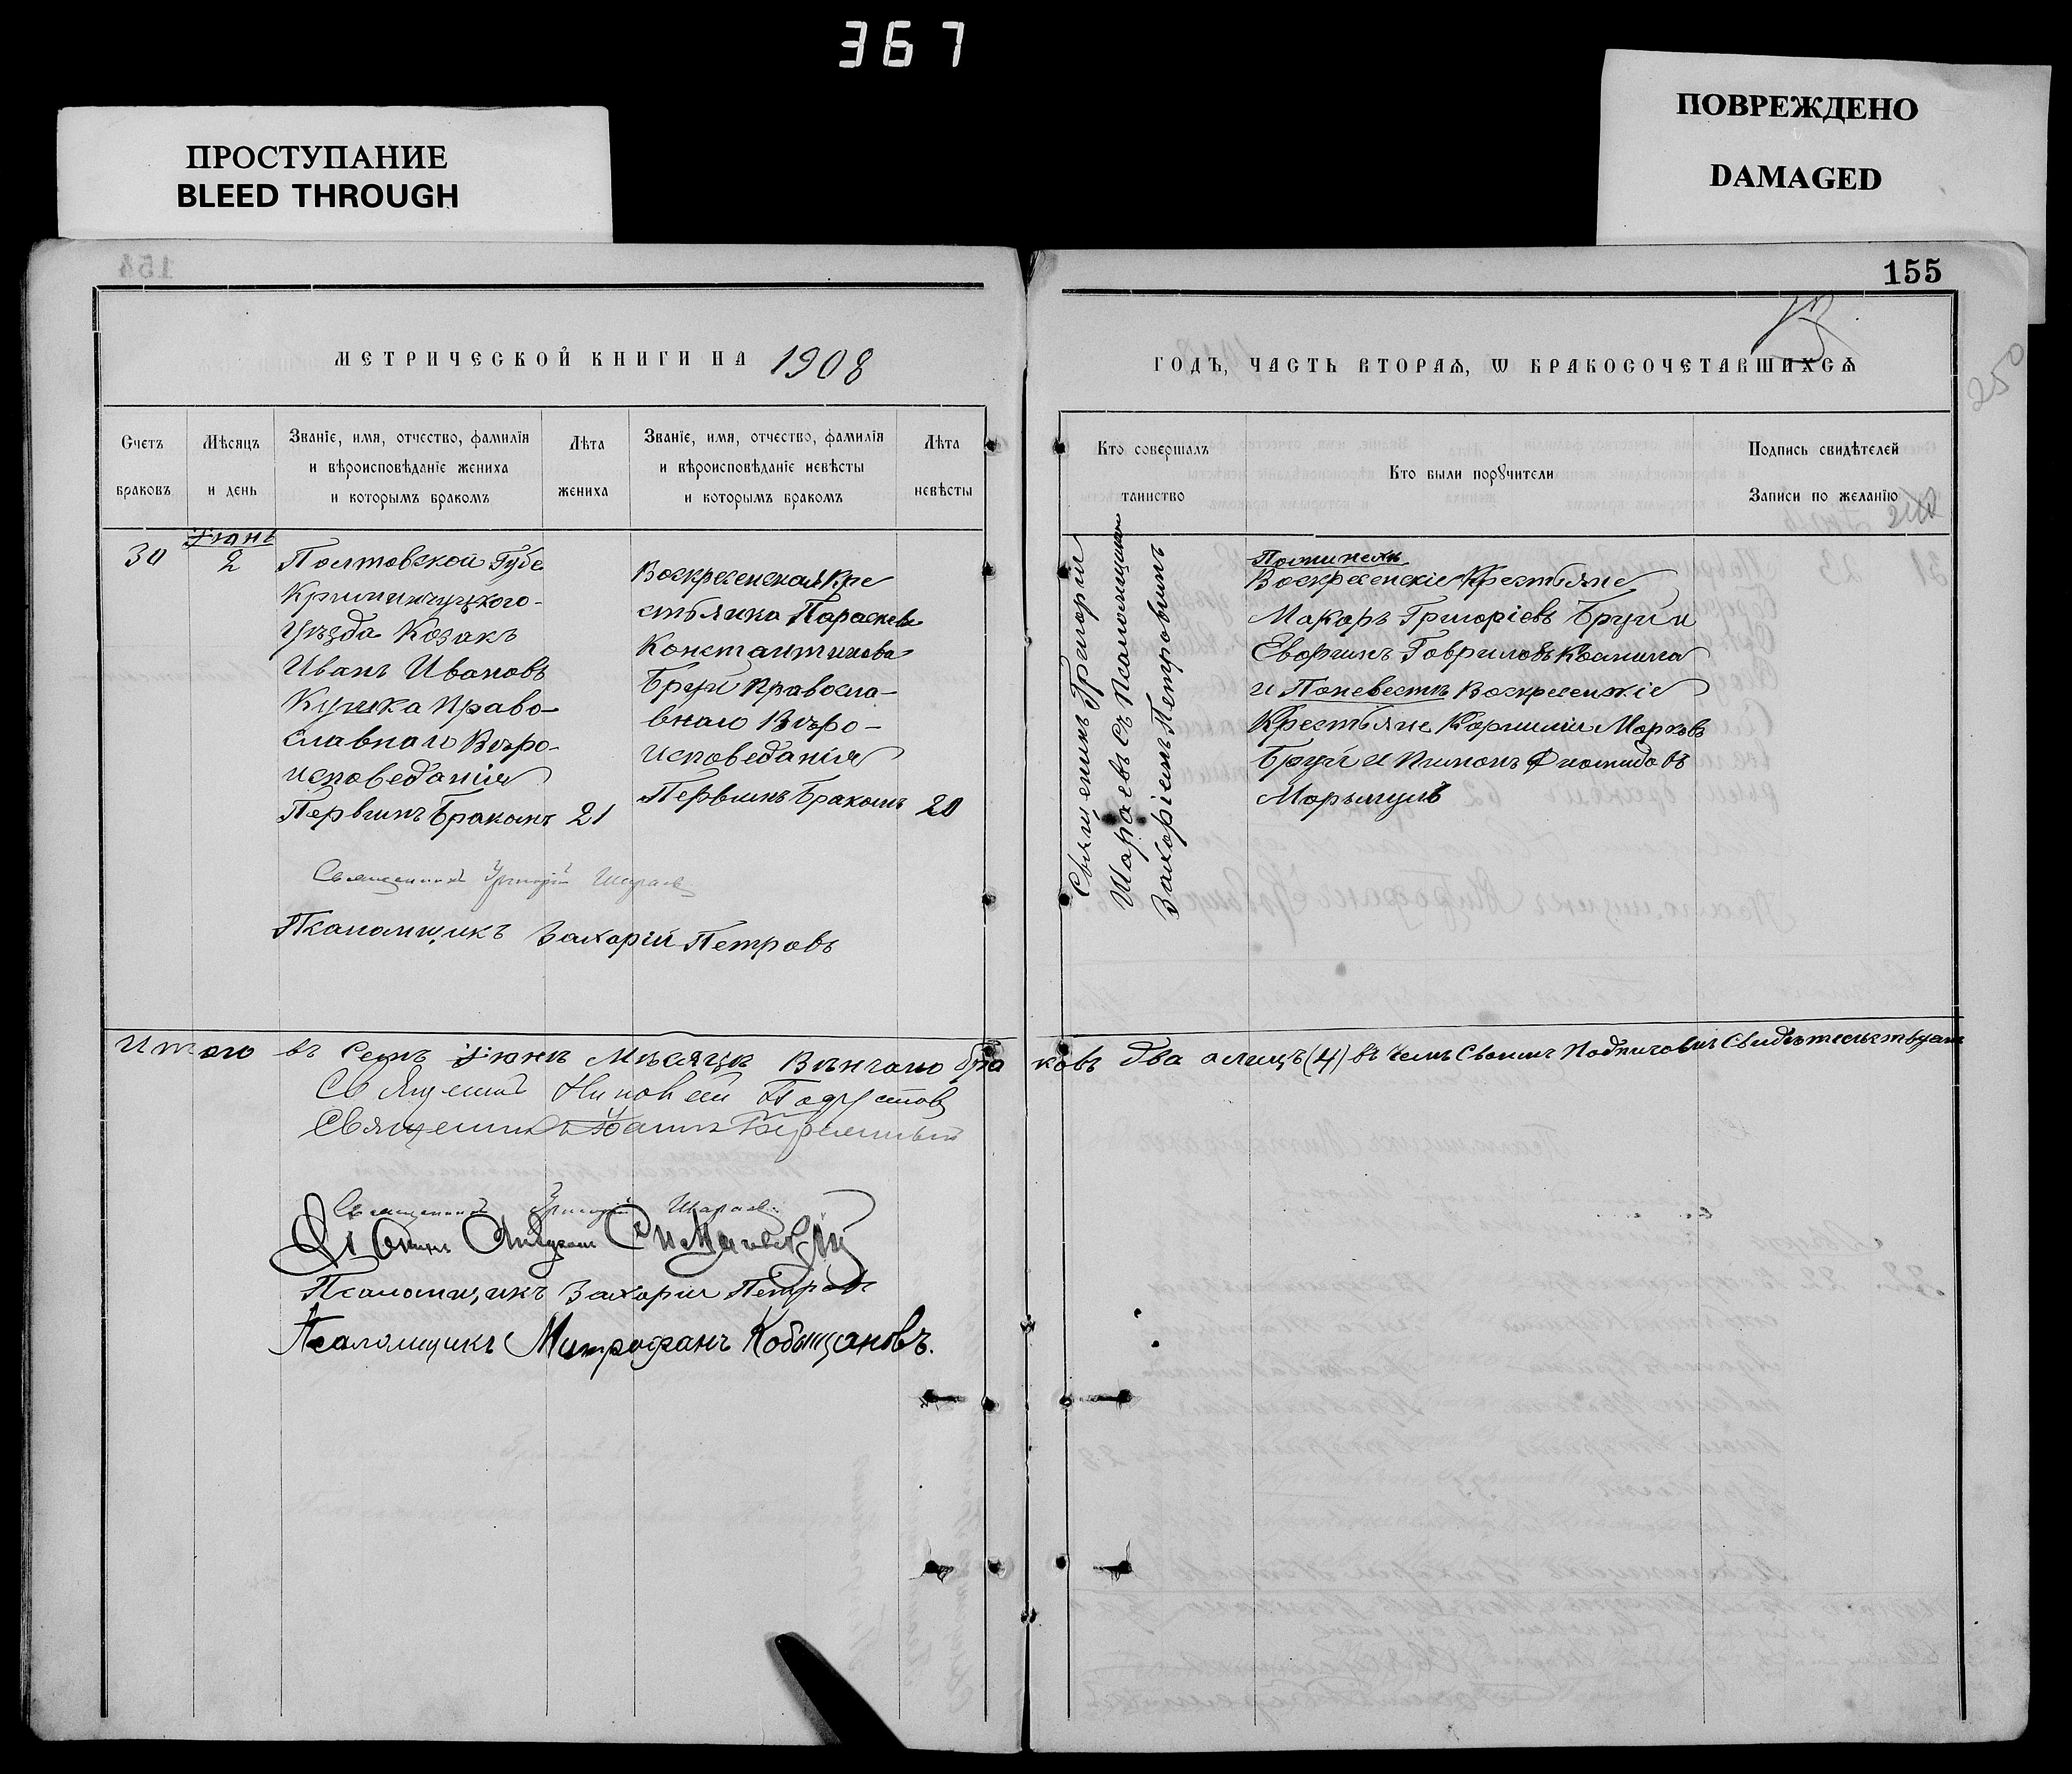 367
ПРОСТУПАНИЕ
BLEED THROUGH
ПОВРЕЖДЕНО
DAMAGED
154
155
МЕТРИЧЕСКОЙ КНИГИ НА 1908
ГОДЪ, ЧАСТЬ ВТОРАЯ, Ѡ БРАКОСОЧЕТАВШИХСѦ
250
Счетъ
браковъ
Мѣсяцъ
и день
Званіе, имя, отчество, фамилія
и вѣроисповѣданіе жениха
и которымъ бракомъ
Лѣта
жениха
Званіе, имя, отчество, фамилія
и вѣроисповѣданіе невѣсты
и которымъ бракомъ
Лѣта
невѣсты
Кто совершалъ
таинство
Кто были порꙋчители
Подпись свидѣтелей
Записи по желанію
30
Іюнь
2
Полтовской Губе
Крименчуцкого-
Уѣзда Козакъ
Иванъ Ивановъ
Кушка Право-
славнаго Вѣро-
исповеданія
Первымъ Бракомъ 21
Воскресенская Кре
стьянка Параскева
Константинова
Бруй Правосла-
внаго Вѣро-
исповеданія
Первымъ Бракомъ 20
Священникъ Григорий
Шараевъ съ Псаломщикомъ
Захаріемъ Петровымъ
Воскресенскіе Крестьяне
Макаръ Григоріевъ Бруй и
Гавриловъ
и Поневестѣ Воскресенскіе
Крестьяне Корнилий Марковъ
Бруй и
Священникъ Григорій Шараевъ
Псаломщикъ Захарій Петровъ
Итого въ семъ Іюнѣ Мѣсяцѣ Венчано бра
ковъ два а лицъ (4) въ чемъ своимъ Подписомъ Свидетельствуемъ
Священникъ
Священникъ
Священникъ Григорій Шараевъ
Псаломщикъ Захарий Петровъ
Псаломщикъ Митрофанъ Кобыщановъ.